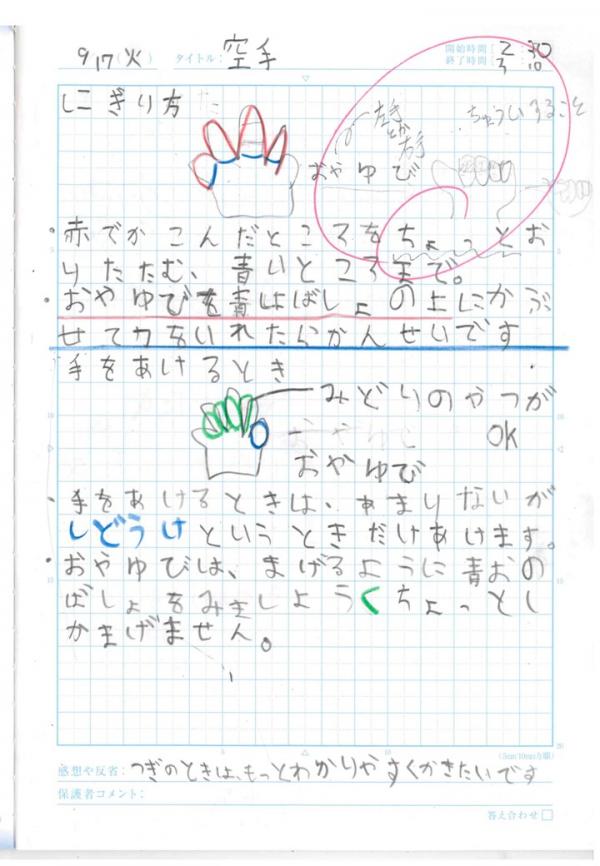 9/17(火) タイトル: 空手 開始時間 2:30
終了時間 3:10
にぎり方
ちゅういすること
左手
とか
右手
おやゆび
・赤でかこんだところをちょっとお
りたたむ、青いところまで。
・おやゆびを青いばしょの上にかぶ
せて力をいれたらかんせいです
手をあけるとき
みどりのやつが
OK
おやゆび
・手をあけるときは、あまりないが
しどうけというときだけあけます。
・おやゆびは、まげるように青おの
ばしょをみましょうくちょっとし
かまげません。
(5mm/10mm方眼)
感想や反省: つぎのときは、もっとわかりやすくかきたいです
保護者コメント:
答え合わせ